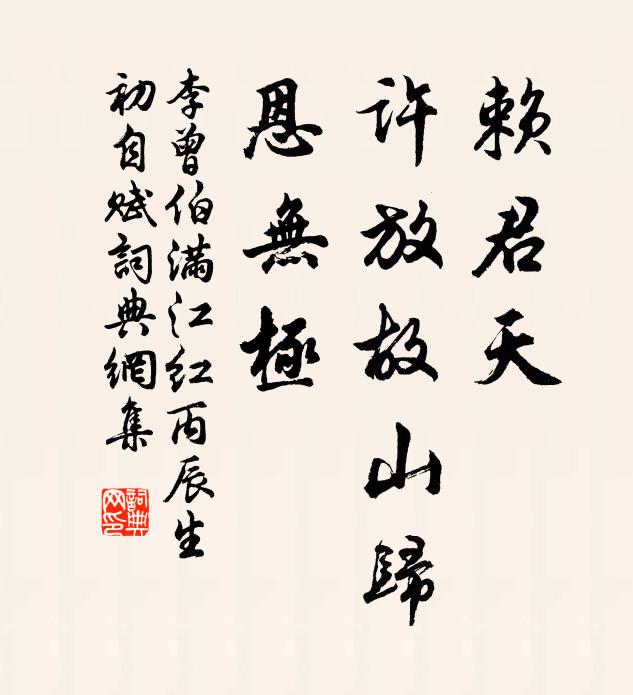 賴君天
許放故山歸
恩無極
李曾伯滿江红丙辰生
初自赋詞典網集
詞典
网印